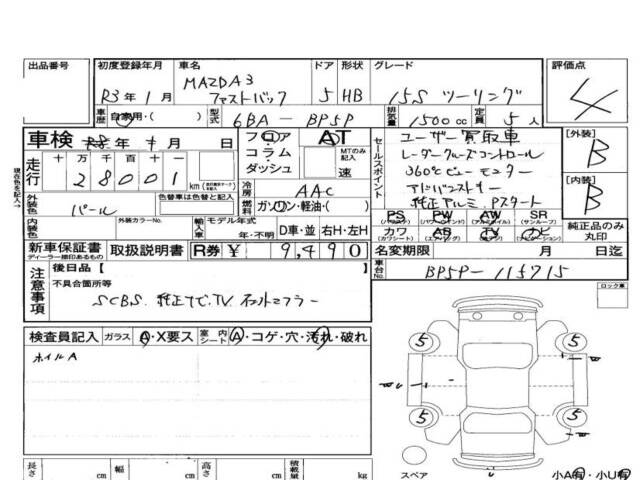 出品番号 初度登録年月 車名 ドア 形状 グレード 評価点
R3年 1月 MAZDA3 ファストバック 5 HB 15S ツーリング 4
車歴 自家用・( ) 型式 6BA - BP5P 排気量 1500cc 定員 5人
車検 年 月 日 フロア AT セールスポイント ユーザー買取車 [外装] B
走行 十 万 千 百 十 一 コラム MTのみ記入 レーダークルーズコントロール
28001 km ダッシュ 速 360°ビューモニター
現在色を記入→ 冷房 AAC アドバンストキー [内装] B
外装色 パール 色替車は色替と記入 燃料 ガソリン・軽油・( ) 純正アルミ Pスタート
内装色 外装カラーNo. 輸入車 モデル年式 年・不明 D車・並 右H・左H
PS PW AW SR
(パワーステ) (パワーウインド) (アルミホイール) (サンルーフ)
カワ AB TV ナビ 純正品のみ丸印
(カワシート) (エアバッグ) (テレビ) (ナビゲーション)
新車保証書 取扱説明書 R券 ¥ 9,490 名変期限 月 日迄
ディーラー様印のあるもの
注意事項 後日品 [ ] 車台No. BP5P-115715
不具合箇所等
SCBS. 純正ナビ.TV. ネットミラー
ロック車
検査員記入 ガラス A・X要ス 室内シート A・コゲ・穴・汚れ・破れ
ホイルA
5 5
5 5
スペア 小A有・小U有
長さ cm 幅 cm 高さ cm 積載量 kg